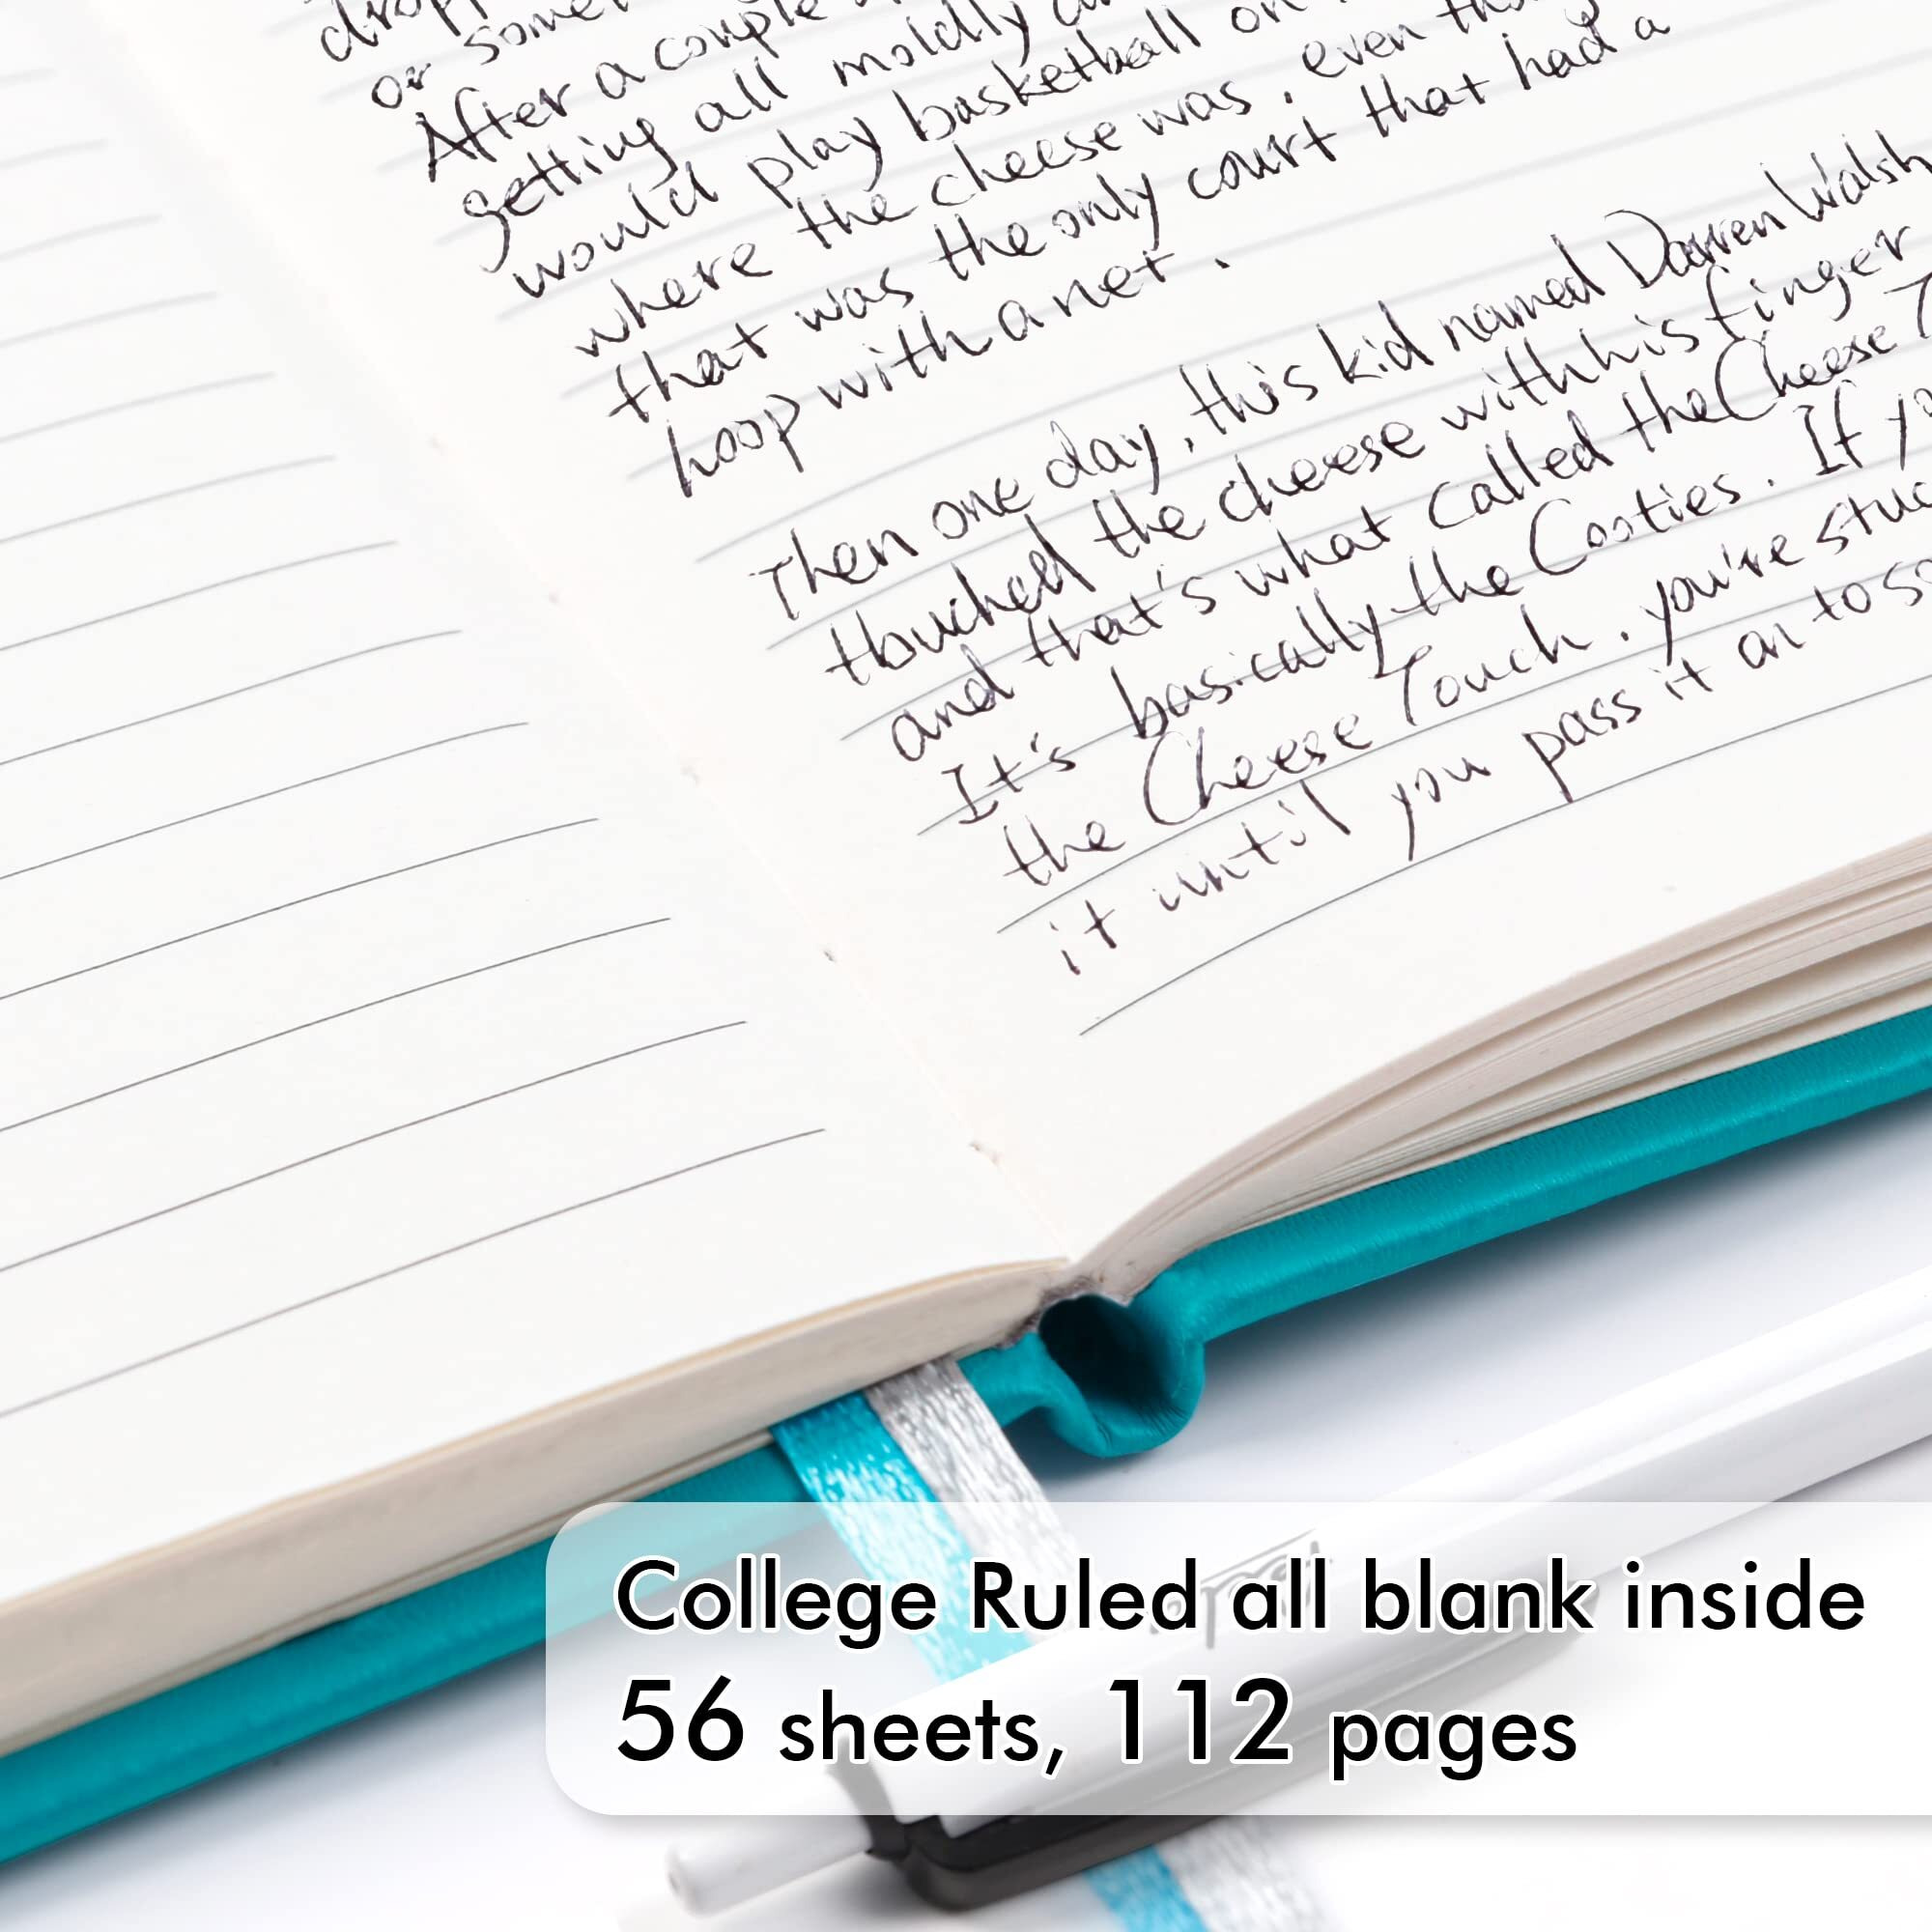 or
After a couple
getting all moldly
would play basketball on
where the cheese was. even
that was the only court that had a
hoop with a net.
Then one day, this kid named Darren Walsh
thouched the cheese with his finger
and that's what called the Cheese T
It's basically the Cooties. If yo
the Cheese Touch. you're stuc
it until you pass it on to so
College Ruled all blank inside
56 sheets, 112 pages